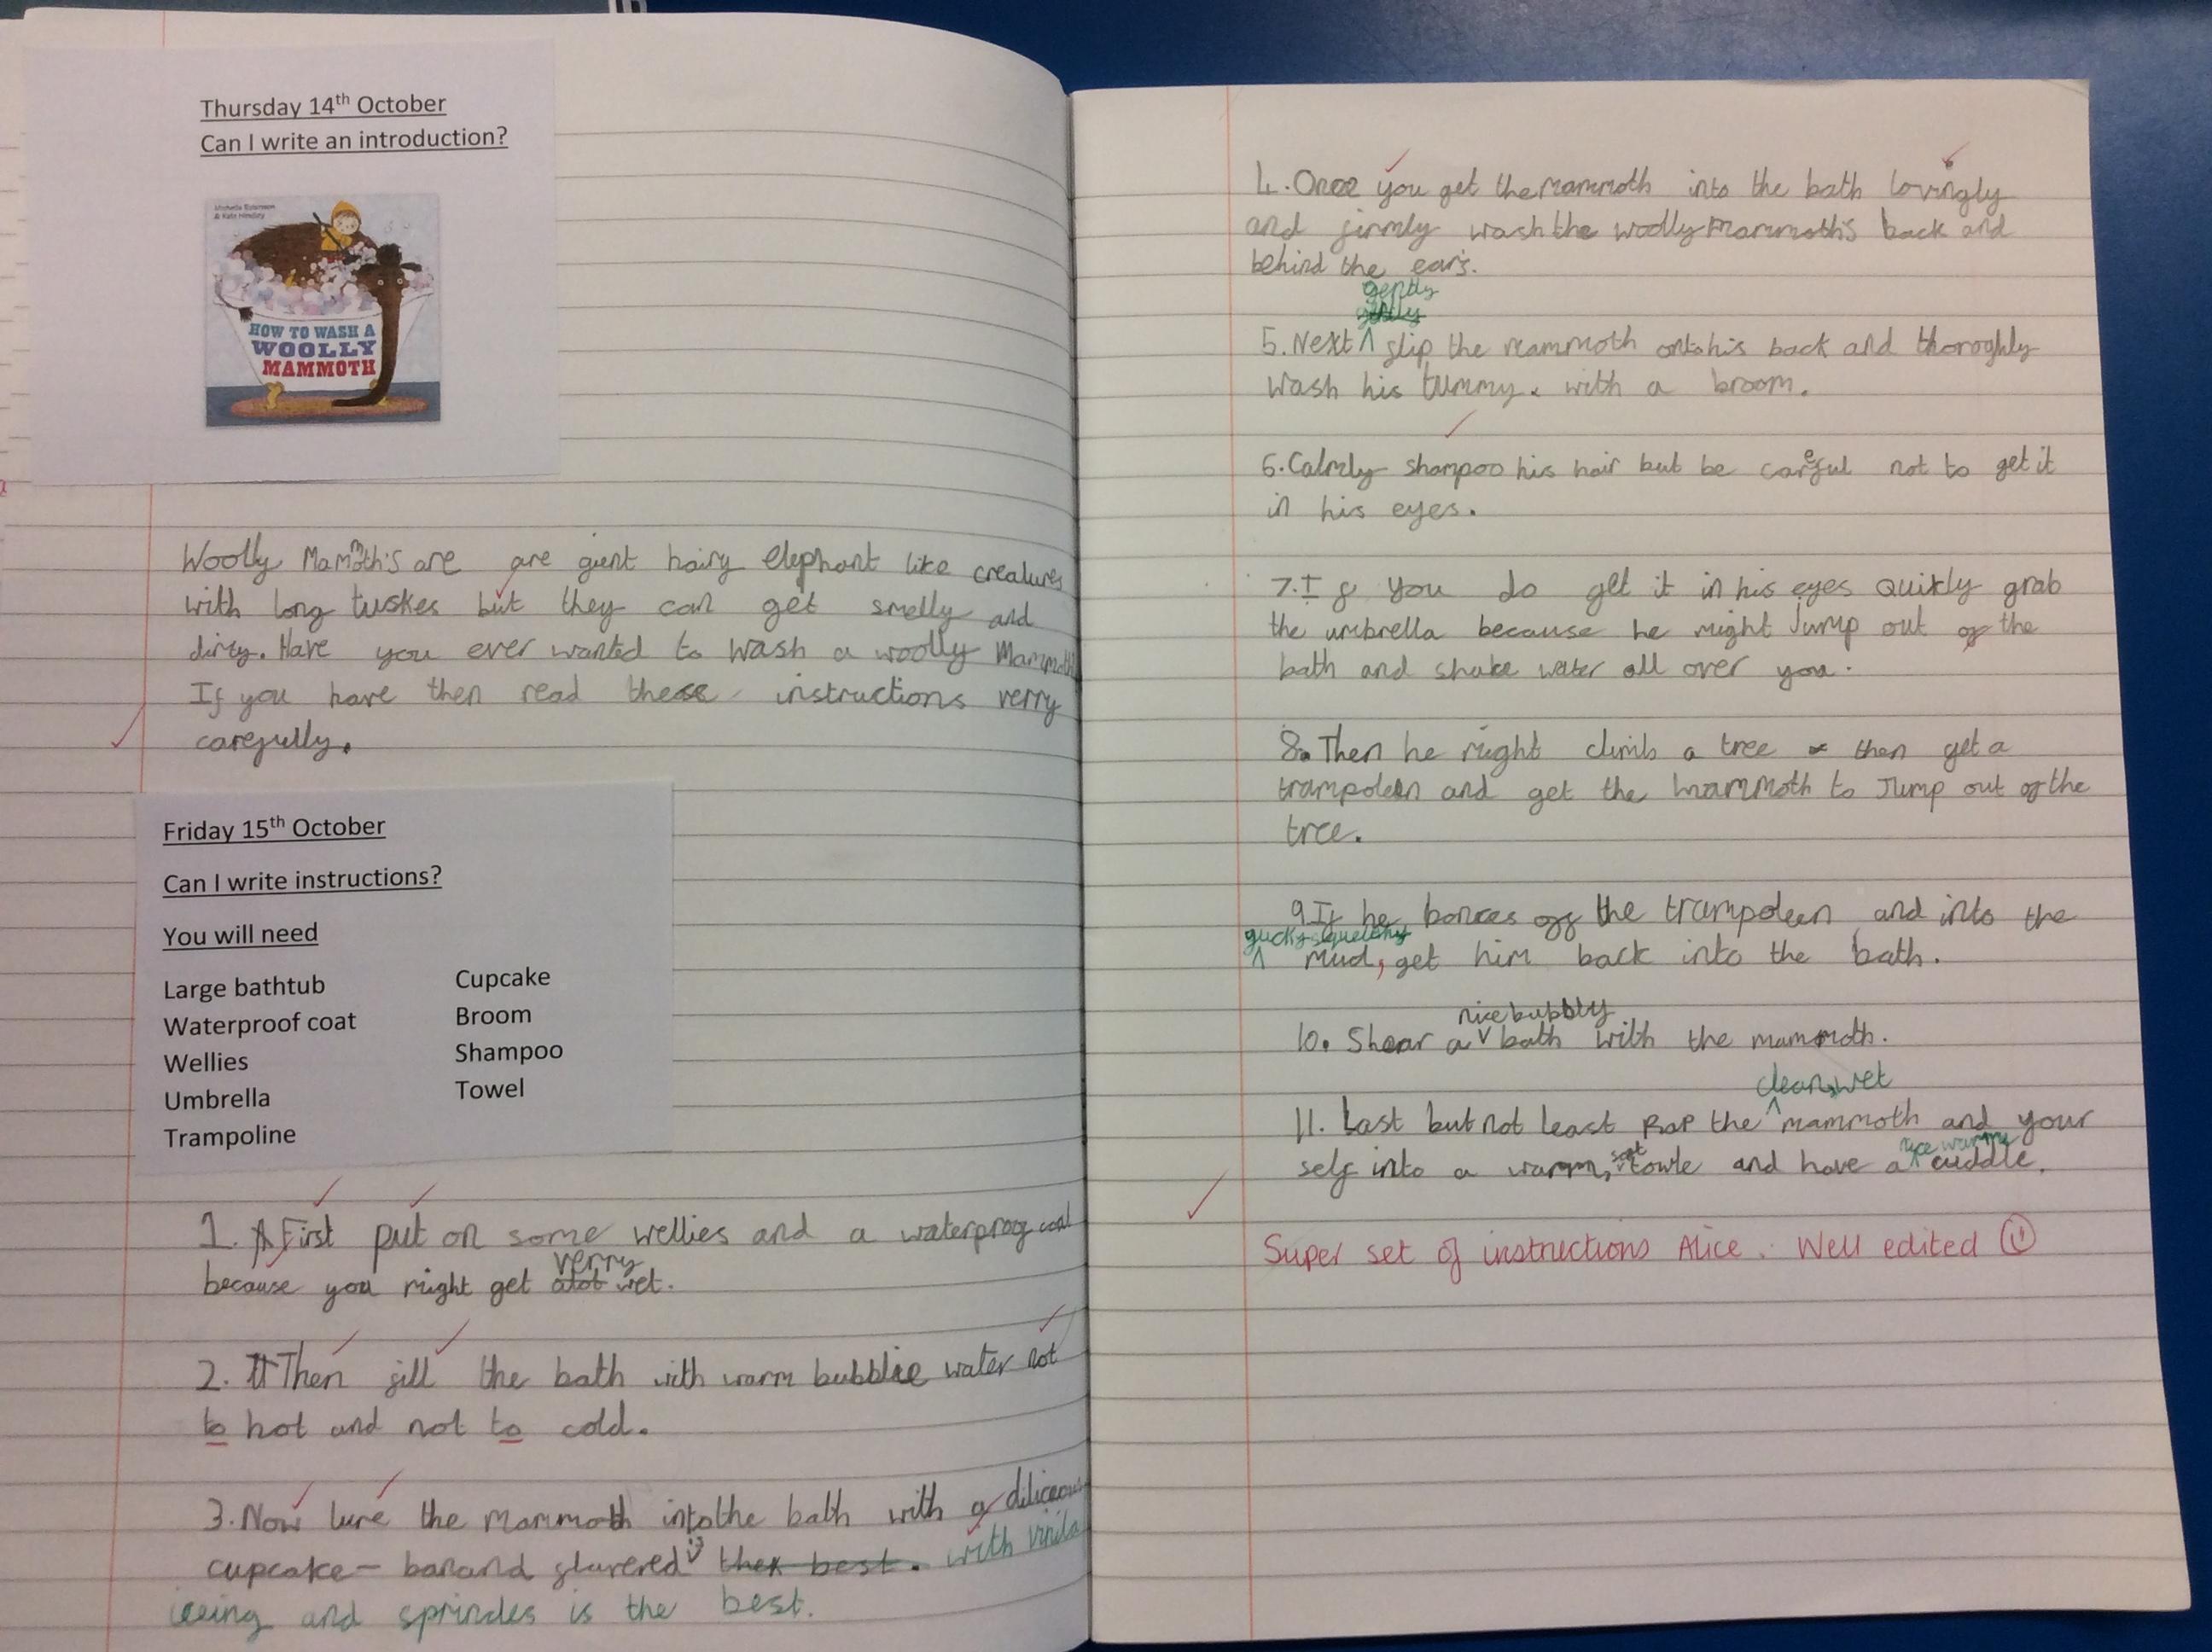 Thursday 14th October
Can I write an introduction?
HOW TO WASH A
WOOLLY
MAMMOTH
Woolly Mammoth's are are gient hairy elephant like creatures
with long tuskes but they can get smelly and
dirty. Have you ever wanted to wash a woolly Mammoth
If you have then read these instructions verry
carefully.
Friday 15th October
Can I write instructions?
You will need
Large bathtub
Waterproof coat
Wellies
Umbrella
Trampoline
Cupcake
Broom
Shampoo
Towel
1. First put on some wellies and a waterproof coat
verry
because you might get alot wet.
2. Then fill the bath with warm bubblie water not
to hot and not to cold.
3. Now lure the mammoth into the bath with a diliceous
cupcake - banana flavered is the best. with vinila
iceing and sprincles is the best.
4. Once you get the mammoth into the bath lovingly
and firmly wash the woolly mammoth's back and
behind the ears.
gently
5. Next slip the mammoth onto his back and thoroghly
wash his tummy. with a broom.
6. Calmly shampoo his hair but be careful not to get it
in his eyes.
7. If you do get it in his eyes quikly grab
the umbrella because he might jump out of the
bath and shake water all over you.
8. Then he might climb a tree then get a
trampoleen and get the mammoth to jump out of the
tree.
9 If he bonces off the trampoleen and into the
yucky squelchy
mud, get him back into the bath.
nice bubbly
10. Shear a bath with the mammoth.
clean, wet
11. Last but not least Rap the mammoth and your
soft nice warm
self into a warm, towle and have a cuddle.
Super set of instructions Alice. Well edited